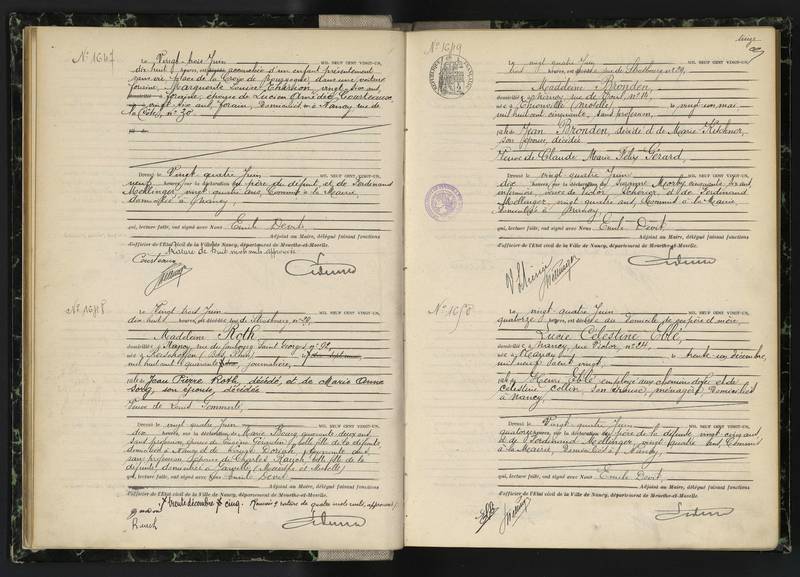 N° 1647
Le Vingt trois Juin MIL NEUF CENT VINGT-UN,
dix huit heures, est accouchée d'un enfant présentement
sans vie place de la Croix de Bourgogne, dans une voiture
foraine, Marguerite Louise Charbon, vingt six ans,
foraine, épouse de Lucien Amédée Courteaux,
vingt six ans, forain, domiciliés à Nancy rue de
la Côte, n° 30.
Dressé le Vingt quatre Juin MIL NEUF CENT VINGT-UN,
neuf heures, sur la déclaration du père du défunt, et de Ferdinand
Mellinger, vingt quatre ans, Commis à la Mairie,
domiciliés à Nancy,
qui, lecture faite, ont signé avec Nous Emile Devit,
Adjoint au Maire, délégué faisant fonctions
d'officier de l'Etat civil de la Ville de Nancy, département de Meurthe-et-Moselle.
Rature de huit mots nuls approuvée
Courteaux
N° 1648
Le Vingt trois Juin MIL NEUF CENT VINGT-UN,
dix huit heures, est décédée rue de Strasbourg, n° 29,
Madeleine Roth
domiciliée à Nancy, rue du faubourg Saint Georges, n° 92,
née à Reichshoffen (Bas Rhin)
mil huit cent quarante journalière,
fille de Jean Pierre Roth, décédé, et de Marie Anne
son épouse, décédée
Veuve de Louis
Dressé le vingt quatre Juin MIL NEUF CENT VINGT-UN,
dix heures, sur la déclaration de Marie Bourg quarante deux ans
sans profession, épouse de Eugène belle fille de la défunte,
domiciliée à Nancy, et de quarante ans,
sans profession, épouse de Charles Rauch belle fille de la
défunte, domiciliée à (Meurthe et Moselle)
qui, lecture faite, ont signé avec Nous Emile Devit
Adjoint au Maire, délégué faisant fonctions
d'officier de l'Etat civil de la Ville de Nancy, département de Meurthe-et-Moselle.
trente décembre cinq. Renvoi & rature de quatre mots nuls, approuvés
Rauch
N° 1649
Le vingt quatre Juin MIL NEUF CENT VINGT-UN,
trois heures, est décédée rue de Strasbourg n° 29,
Madeleine Bronden
domiciliée à Nancy, rue de Toul, n° 18,
née à Thionville (Moselle) le vingt un mai
mil huit cent cinquante, sans profession,
fille de Jean Bronden, décédé et de Marie Kilchner,
son épouse, décédée
Veuve de Claude Marie Félix Gérard,
Dressé le vingt quatre Juin MIL NEUF CENT VINGT-UN,
dix heures, sur la déclaration de Suzanne cinquante six ans
infirmière, veuve de Victor et de Ferdinand
Mellinger, vingt quatre ans, Commis à la Mairie,
domiciliés à Nancy,
qui, lecture faite, ont signé avec Nous Emile Devit,
Adjoint au Maire, délégué faisant fonctions
d'officier de l'Etat civil de la Ville de Nancy, département de Meurthe-et-Moselle.
N° 1650
Le vingt-quatre Juin MIL NEUF CENT VINGT-UN,
quatorze heures, est décédée au domicile de ses père et mère,
Lucie Célestine Eblé,
domiciliée à Nancy, n° 24,
née à Nancy le trente un décembre,
mil neuf cent vingt,
fille de Henri Eblé employé aux chemins de fer et de
Célestine Collin, son épouse, ménagère, domiciliés
à Nancy
Dressé le Vingt quatre Juin MIL NEUF CENT VINGT-UN,
heures, sur la déclaration du père de la défunte, vingt cinq ans
et de Ferdinand Mellinger, vingt quatre ans, Commis
à la Mairie, domiciliés à Nancy,
qui, lecture faite, ont signé avec Nous Emile Devit,
Adjoint au Maire, délégué faisant fonctions
d'officier de l'Etat civil de la Ville de Nancy, département de Meurthe-et-Moselle.